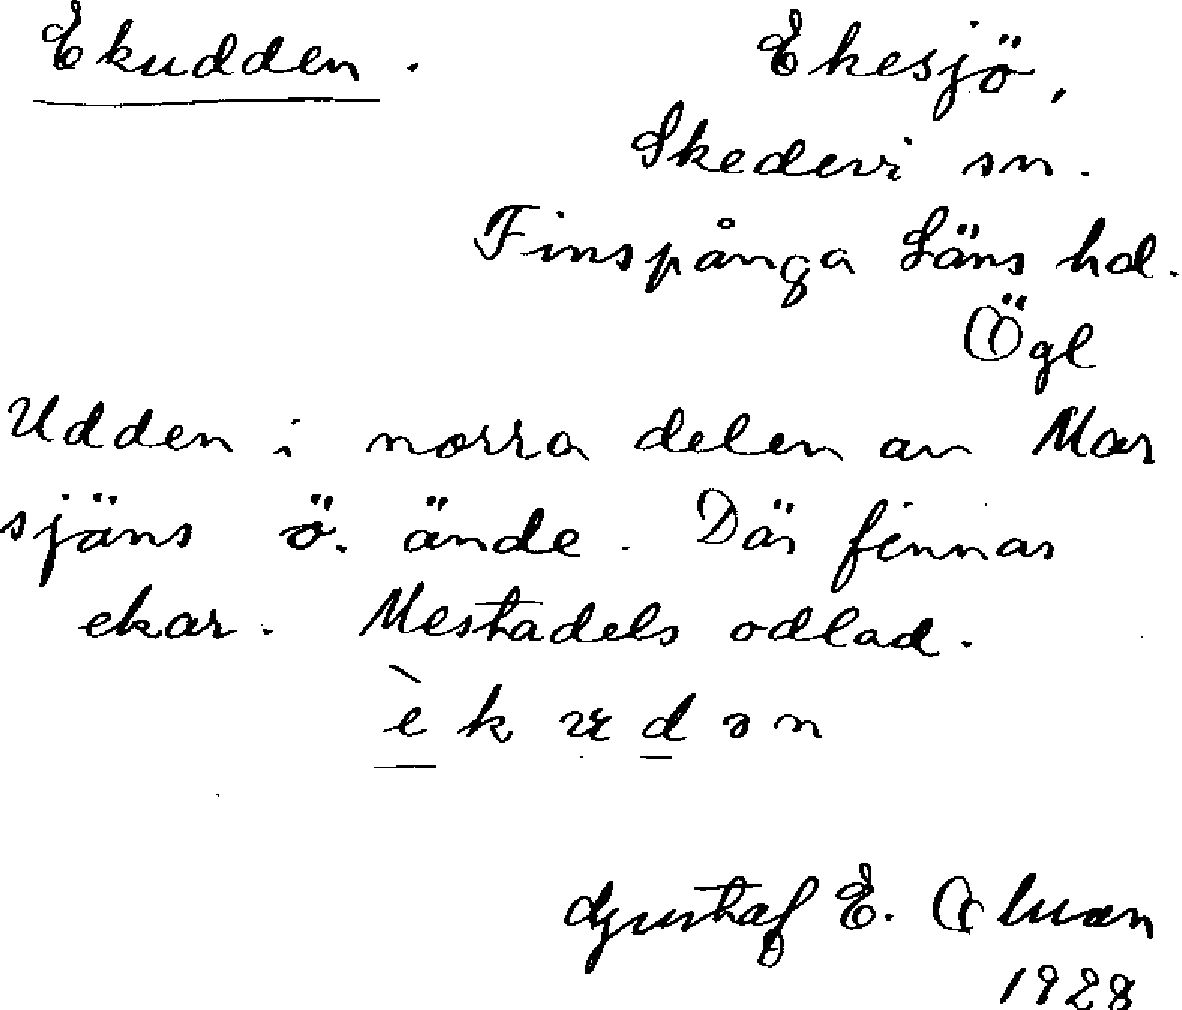 Ekudden. Ekesjö,
Skedevi sn.
Finspånga Läns hd.
Ögl
Udden i norra delen av Mar
sjöns ö. ände. Där finnas
ekar. Mestadels odlad.
Gustaf E.
1928